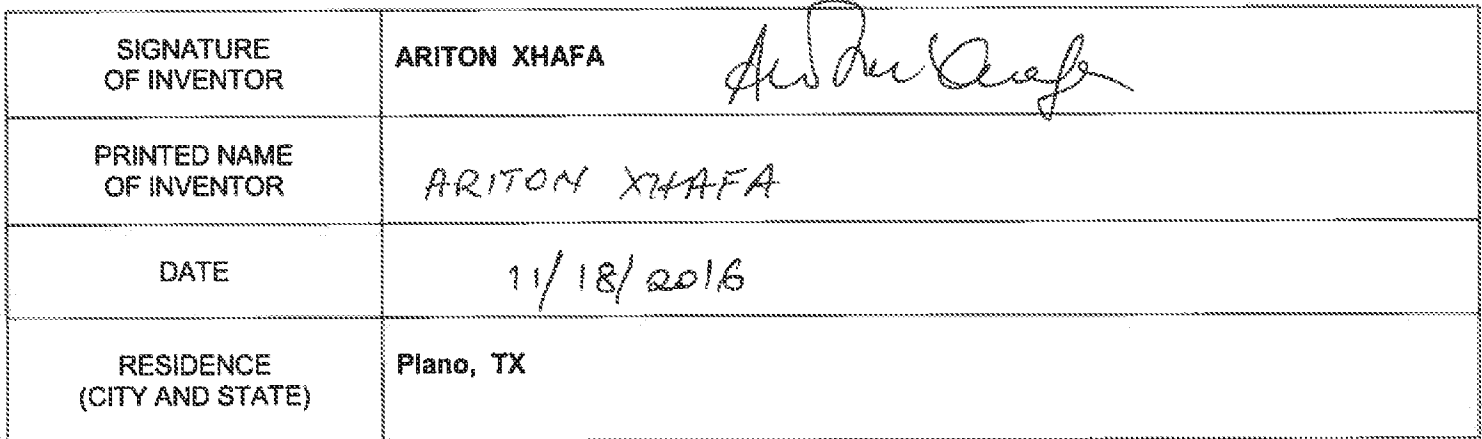 SIGNATURE
OF INVENTOR
ARITON XHAFA
Ariton Xhafa
PRINTED NAME
OF INVENTOR
ARITON XHAFA
DATE
11/18/2016
RESIDENCE
(CITY AND STATE)
Plano, TX